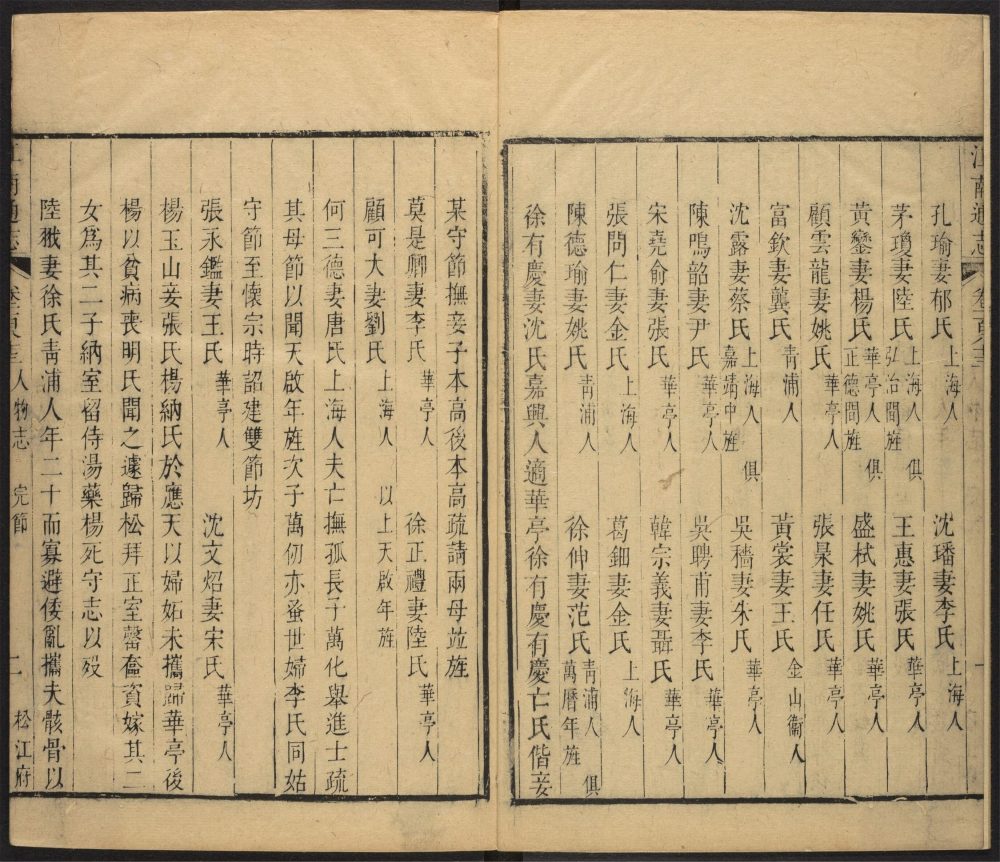 江南通志
孔瑜妻郁氏 上海人 沈璠妻李氏 上海人
茅瓊妻陸氏 上海人 俱弘治間旌 王惠妻張氏 華亭人
黃鑾妻楊氏 華亭人 俱正德間旌 盛栻妻姚氏 華亭人
顧雲龍妻姚氏 華亭人 張杲妻任氏 華亭人
富欽妻龔氏 青浦人 黃裳妻王氏 金山衞人
沈露妻蔡氏 上海人 俱嘉靖中旌 吳穡妻朱氏 華亭人
陳鳴韶妻尹氏 華亭人 吳聘甫妻李氏 華亭人
宋堯俞妻張氏 華亭人 韓宗義妻聶氏 華亭人
張問仁妻金氏 上海人 葛鈿妻金氏 上海人
陳德瑜妻姚氏 青浦人 徐伸妻范氏 青浦人 俱萬曆年旌
徐有慶妻沈氏嘉興人適華亭徐有慶有慶亡氏偕妾
某守節撫妾子本高後本高疏請兩母竝旌
莫是卿妻李氏 華亭人 徐正禮妻陸氏 華亭人
顧可大妻劉氏 上海人 以上天啟年旌
何三德妻唐氏上海人夫亡撫孤長子萬化舉進士疏
其母節以聞天啟年旌次子萬仞亦蚤世婦李氏同姑
守節至懷宗時詔建雙節坊
張永鑑妻王氏 華亭人 沈文炤妻宋氏 華亭人
楊玉山妾張氏楊納氏於應天以婦妬未攜歸華亭後
楊以貧病喪明氏聞之遽歸松拜正室罄奩資嫁其二
女爲其二子納室畱侍湯藥楊死守志以歿
陸戭妻徐氏青浦人年二十而寡避倭亂攜夫骸骨以
人物志 完節 二 松江府